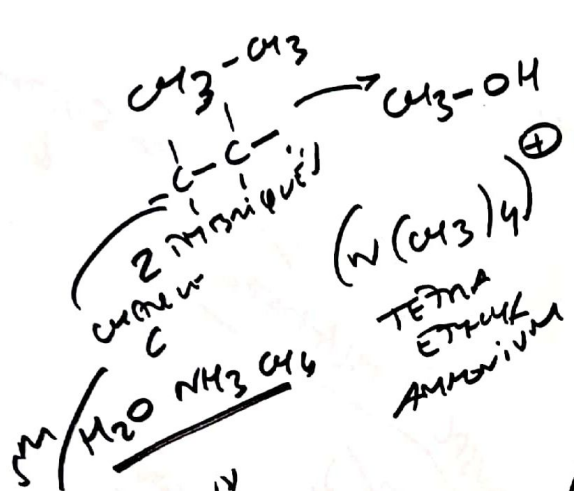 CH3-CH3
CH3-OH
-C-C-
2 imbriqués
C
(N(CH3)4)⊕
TETRA
ETHYL
AMMONIUM
H2O NH3 CH4